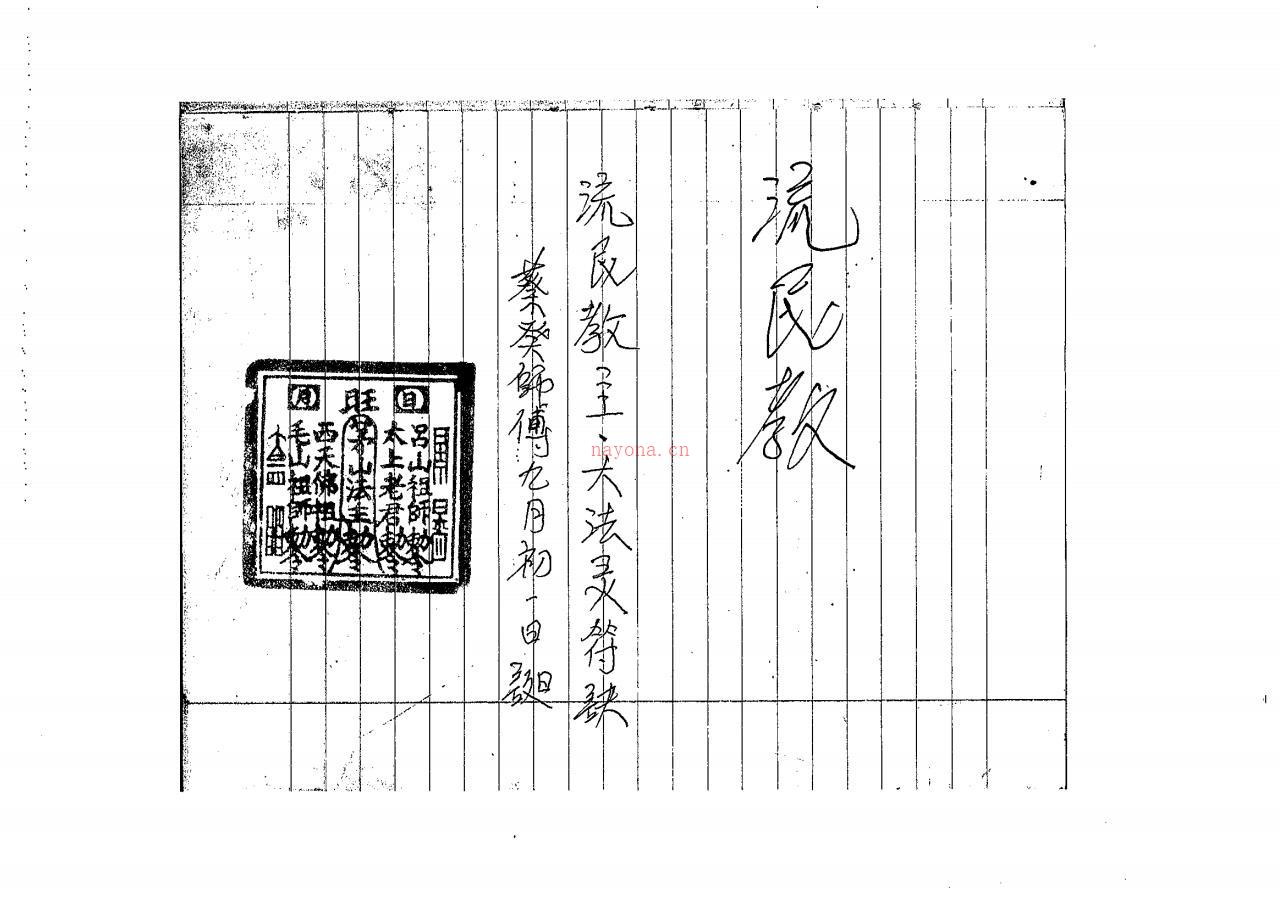 流民教
流民教主、大法灵符訣
蔡癸師傅九月初一日
日
呂山祖師勅令
太上老君勅令
旺
茅山法主勅令
西天佛祖勅令
月
毛山祖師勅令
nayona.cn